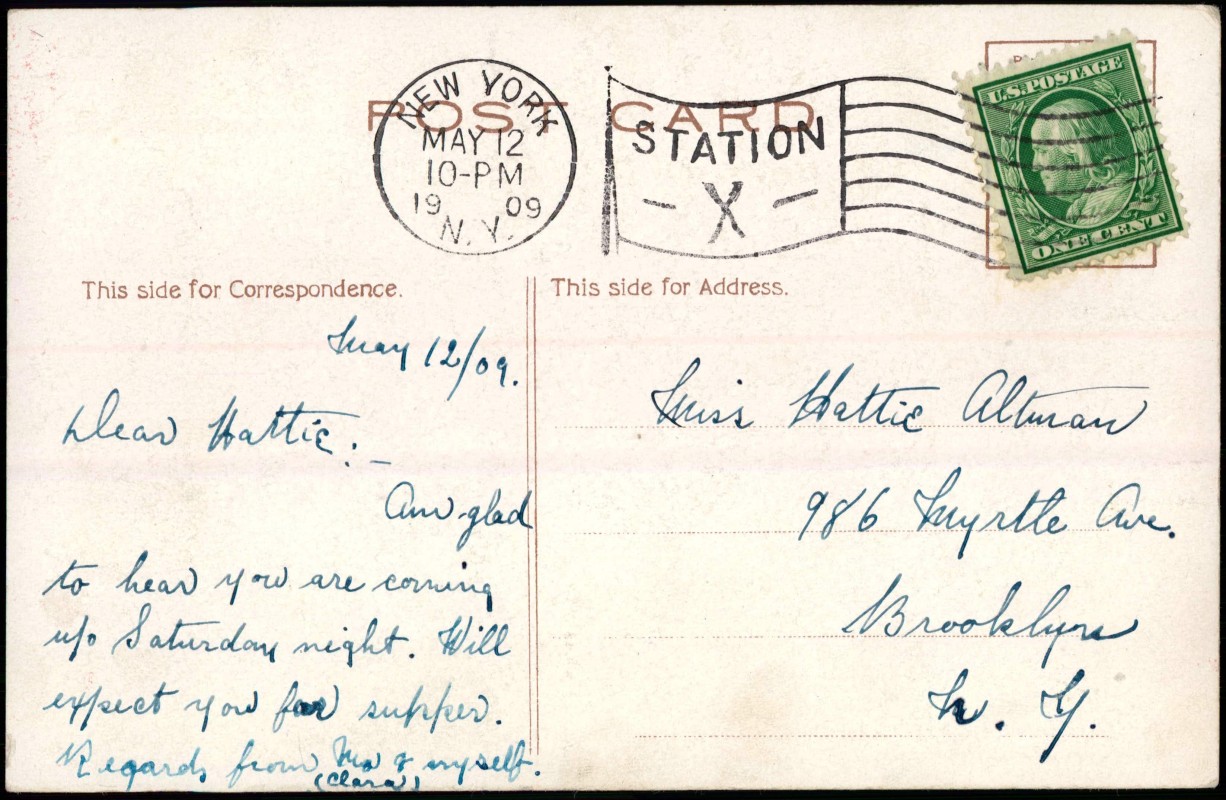 POST CARD
NEW YORK
MAY 12
10-PM
19 09
N.Y.
STATION
- X -
U.S. POSTAGE
ONE CENT
This side for Correspondence.
May 12/09.
Dear Hattie:—
Am glad
to hear you are coming
up Saturday night. Will
expect you for supper.
Regards from Ma & myself.
(Clara)
This side for Address.
Miss Hattie Altman
986 Myrtle Ave.
Brooklyn
N. Y.